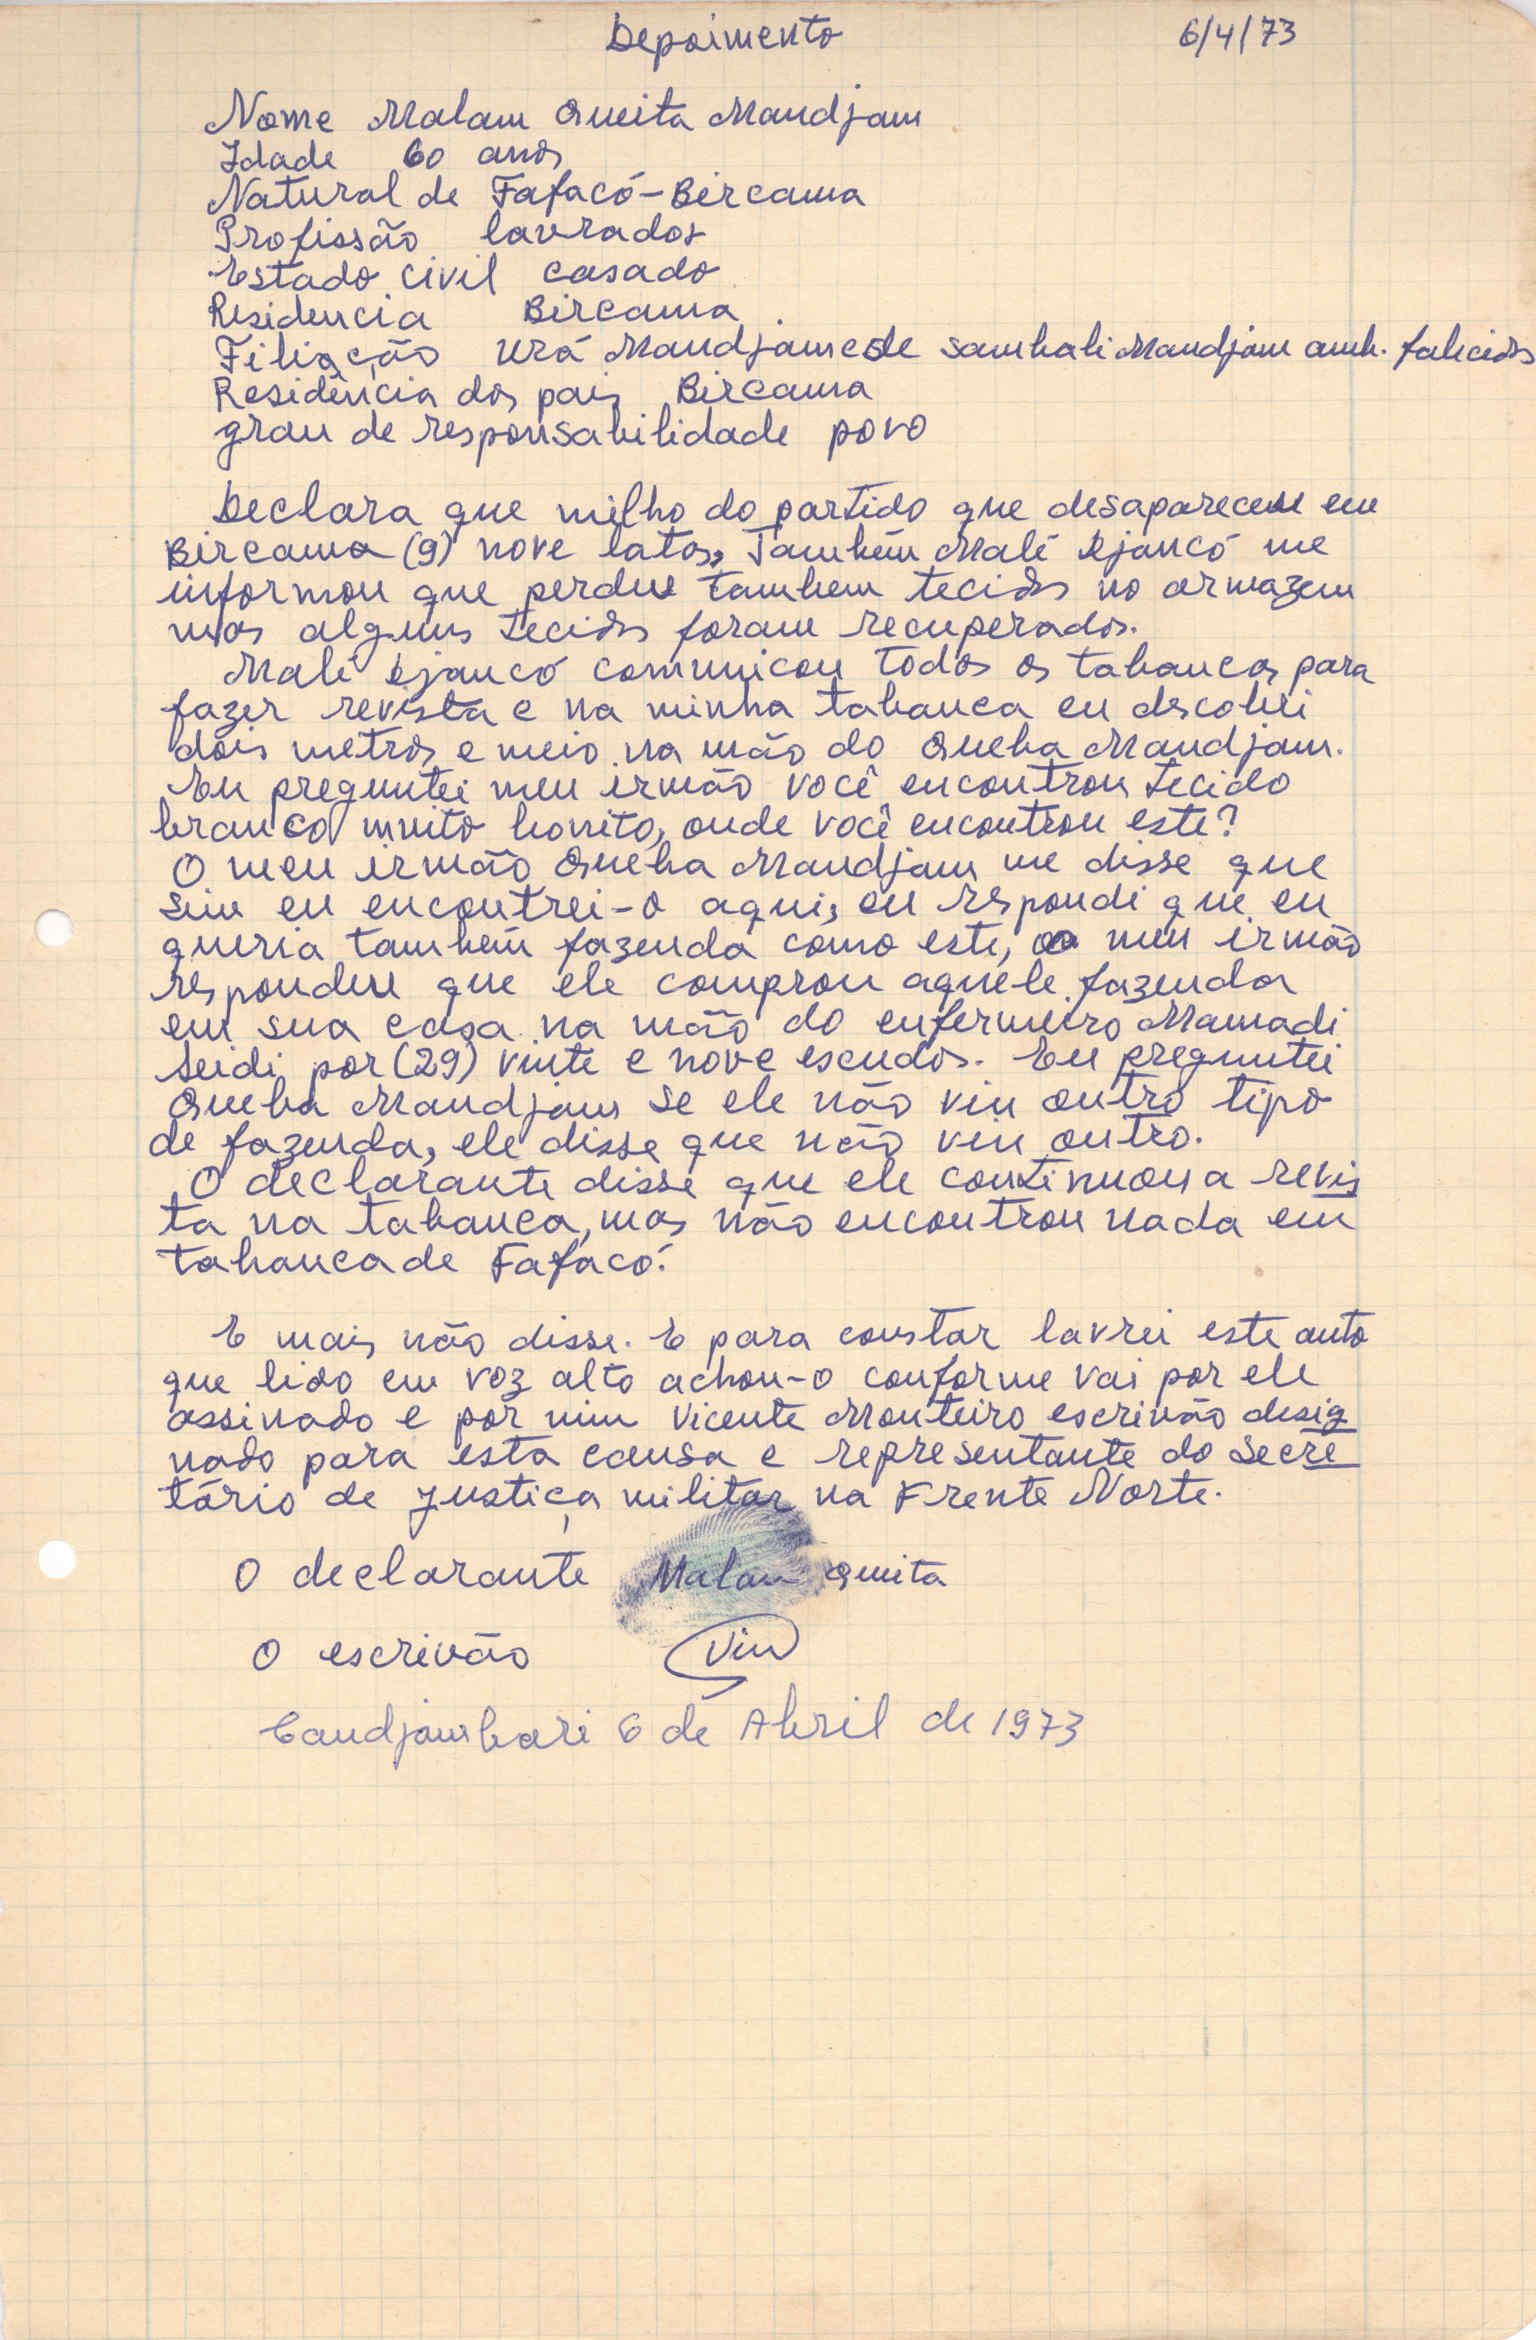 Depoimento 6/4/73
Nome Malam Queita Mandjam
Idade 60 anos
Natural de Fafacó-Bircama
Profissão lavrador
Estado civil casado
Residencia Bircama
Filiação Urá Mandjam e de Sambali Mandjam amb. falecidos
Residência dos pais Bircama
grau de responsabilidade povo
Declara que milho do partido que desapareceu em
Bircama (9) nove latas, Também Malé Djancó me
informou que perdeu tambem tecidos no armazem
mas alguns tecidos foram recuperados.
Malé Djancó comunicou todos os tabancas para
fazer revista e na minha tabanca eu descobri
dois metros e meio na mão do Queba Mandjam.
Eu preguntei meu irmão você encontrou tecido
branco muito bonito, onde você encontrou este?
O meu irmão Queba Mandjam me disse que
sim eu encontrei-o aqui, eu respondi que eu
queria também fazenda como este, o meu irmão
respondeu que ele comprou aquele fazenda
em sua casa na mão do enfermeiro Mamadi
Seidi por (29) vinte e nove escudos. Eu preguntei
Queba Mandjam se ele não viu outro tipo
de fazenda, ele disse que não viu outro.
O declarante disse que ele continuou a revis
ta na tabanca, mas não encontrou nada em
tabanca de Fafacó.
E mais não disse. E para constar lavrei este auto
que lido em voz alto achou-o conforme vai por ele
assinado e por mim Vicente Monteiro escrivão desig
nado para esta causa e representante do Secre
tário de Justiça militar na Frente Norte.
O declarante Malam Queita
O escrivão
Candjambari 6 de Abril de 1973